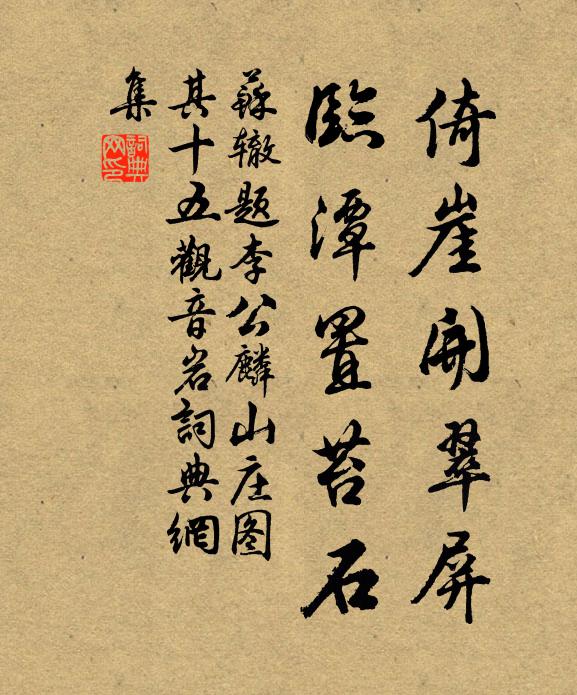 倚崖開翠屏
臨潭置苔石
蘇辙题李公麟山庄图
其十五觀音岩詞典網
集
詞典網印